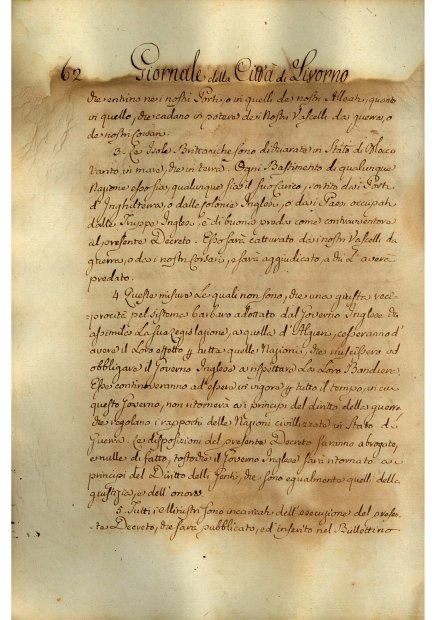 62 Giornale della Città di Livorno
che entrino nei nostri Porti, o in quelli de nostri Alleati, quanto
in quello, che cadano in potere dei Nostri Vascelli da guerra, o
de nostri Corsari.
3. Le Isole Brittaniche sono dichiarate in Stato di Blocco
tanto in mare, che in terra. Ogni Bastimento di qualunque
Nazione esso sia, qualunque sia il suo Carico, sortito dai Porti
d'Inghilterra, o dalle Colonie Inglesi, o dai Paesi occupati
dalle Truppe Inglesi, è di buona preda come contravventore
al presente Decreto. Esso sarà catturato dai nostri Vascelli da
guerra, o dai nostri Corsari, e sarà aggiudicato a chi l'averà
predato.
4. Queste misure le quali non sono, che una giusta reci-
procità pel sistema barbaro adottato dal Governo Inglese che
assimila la sua legislazione, a quella d'Algeri, cesseranno d'
avere il loro effetto p tutte quelle Nazioni, che riuscissero ad
obbligare il Governo Inglese a rispettare la loro Bandiera
Esse continueranno ad essere in vigore p tutto il tempo, in cui
questo Governo, non ritornerà ai principi del diritto della guerra
che regolano i rapporti delle Nazioni civilizzate in Stato di
Guerra. Le disposizioni del presente Decreto saranno abrogate,
e nulle di fatto, tostochè il Governo Inglese sarà ritornato ai
principi del Diritto delle Genti, che sono egualmente quelli della
giustizia, e dell'onore.
5. Tutti i Ministri sono incaricati dell'esecuzione del presen-
te Decreto, che sarà pubblicato, ed inserito nel Bullettino